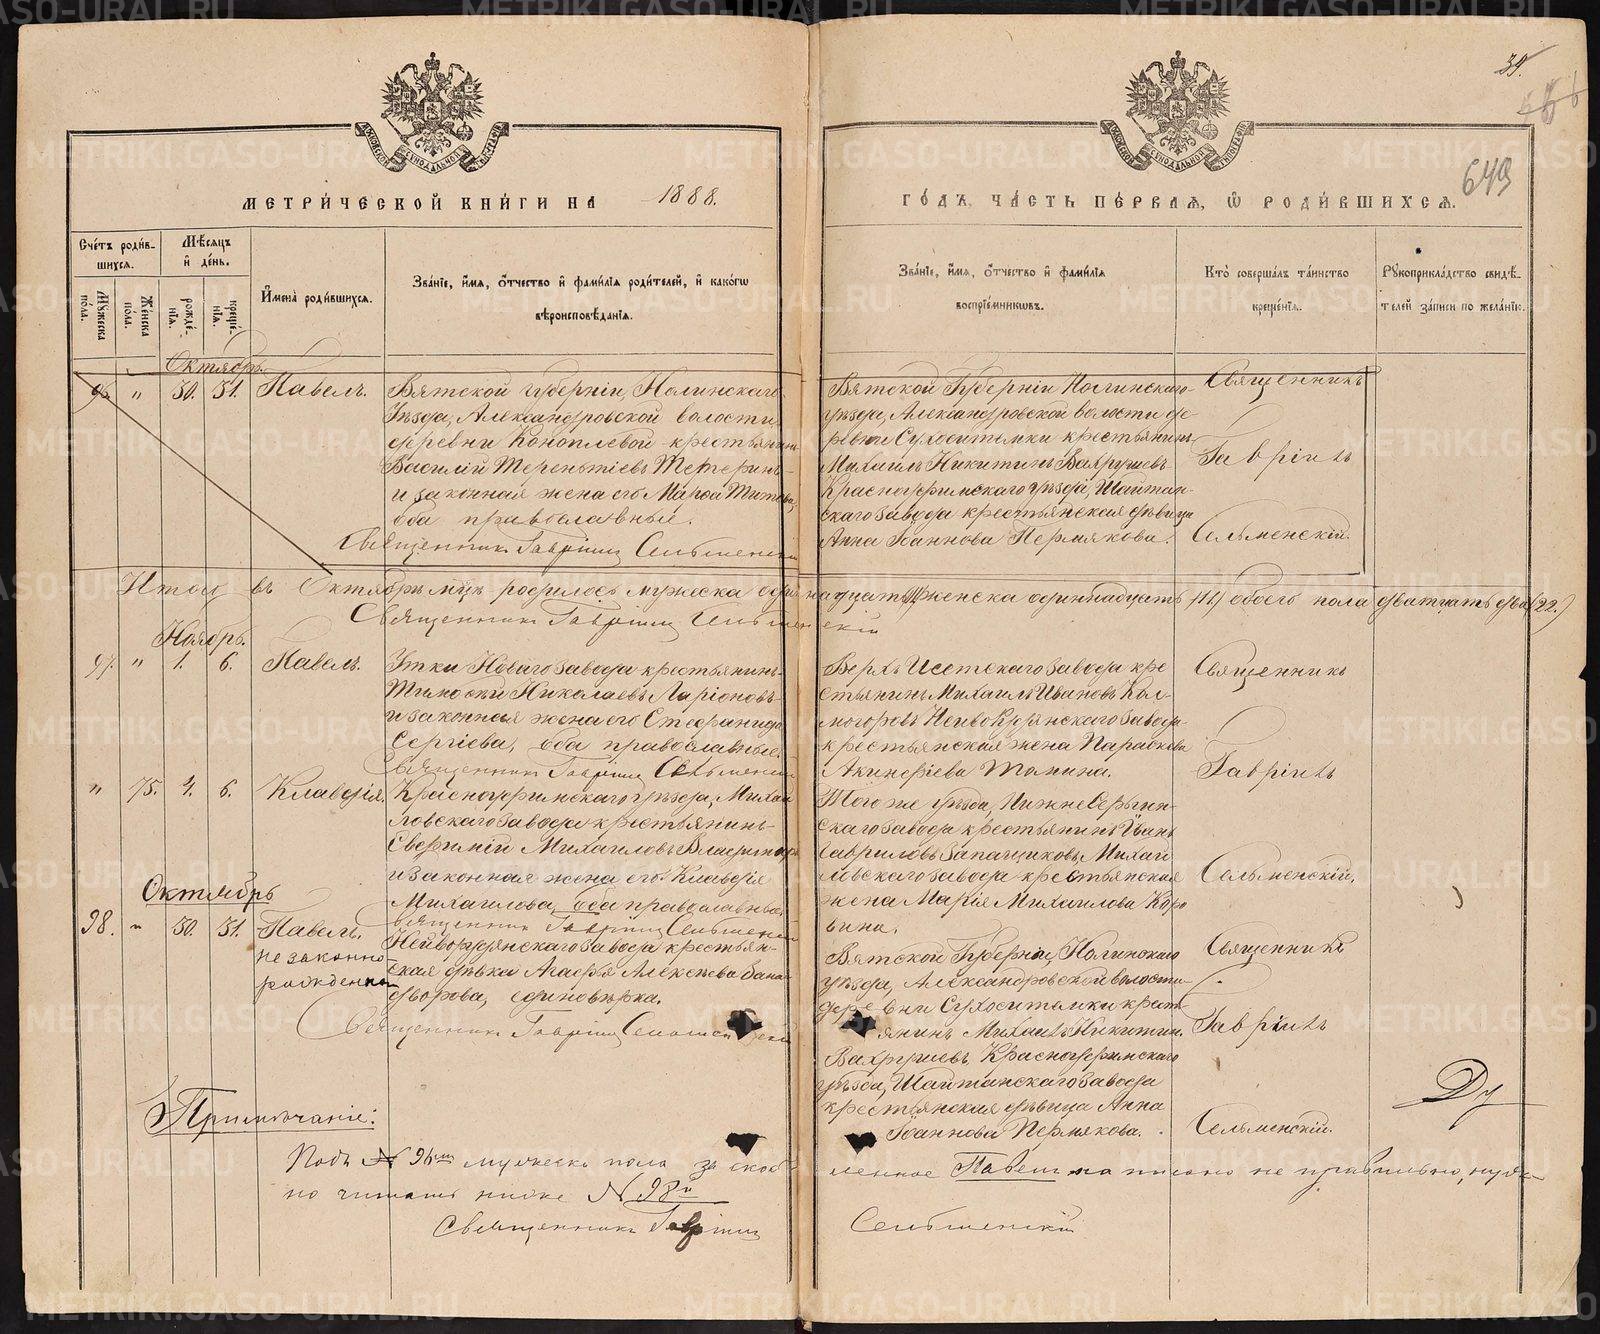 39.
649
МЕТРИ́ЧЕСКОЙ КНИ́ГИ НА 1888. ГО́ДЪ, ЧА́СТЬ ПЕ́РВАѦ, Ѡ РОДИ́ВШИХСѦ.
Сче́тъ роди́вшихсѧ.
Мѣ́сѧцъ и де́нь.
Имена̀ роди́вшихсѧ.
Зва́нїе, и́мѧ, о́тчество и фами́лїѧ роди́телей, и како́гѡ вѣроисповѣ́данїѧ.
Зва́нїе, и́мѧ, о́тчество и фами́лїѧ воспрїе́мниковъ.
Кто̀ соверша́лъ та́инство креще́нїѧ.
Рꙋкоприкла́дство свидѣ́телей за́писи по жела́нїю.
Мꙋ́жеска по́ла.
Же́нска по́ла.
рожде́нїѧ.
креще́нїѧ.
Октябрь.
96. " 30. 31. Павелъ.
Вятской губерніи, Нолинскаго
уѣзда, Александровской волости
деревни Коноплевой крестьянинъ
Василій Терентьевъ Тетеринъ
и законная жена его Марѳа Титова,
оба православные.
Священникъ Гавріилъ Сельменскій
Вятской Губерніи Нолинскаго
уѣзда, Александровской волости де-
ревни Сухоситемки крестьянинъ
Михаилъ Никитинъ Вахрушевъ
Красноуфимскаго уѣзда, Шайтан-
скаго завода крестьянская дѣвица
Анна Іоаннова Пермякова.
Священникъ
Гавріилъ
Сельменскій.
Итого въ Октябрѣ мцѣ родилось мужска одиннадцать, женска одиннадцать (11) обоего пола двадцать два (22.)
Священникъ Гавріилъ Сельменскій
Ноябрь.
97. " 1. 6. Павелъ.
Утки Новаго завода крестьянинъ
Тимоѳей Николаевъ Ларіоновъ
и законная жена его Стефанида
Сергіева, оба православные.
Священникъ Гавріилъ Сельменскій
Верхъ Исетскаго завода кре
стьянинъ Михаилъ Ивановъ Кол-
могоровъ Нейворудянскаго завода
крестьянская жена Параскева
Акинфіева Шанина.
Священникъ
Гавріилъ
Сельменскій.
" 75. 4. 6. Клавдія.
Красноуфимскаго уѣзда, Михай
ловскаго завода крестьянинъ
Евфимій Михаиловъ
и законная жена его Клавдія
Михаилова, оба православные.
Священникъ Гавріилъ Сельменскій
Того же уѣзда, Нижне Сергин-
скаго завода крестьянинъ Иванъ
Гавриловъ Запащиковъ, Михай
ловскаго завода крестьянская
жена Марія Михаилова Коро
вина.
Октябрь
98. " 30. 31. Павелъ.
незаконно
рожденный
Нейворудянскаго завода крестьян-
ская дѣвка Агафья Алексѣева
дворова, единовѣрка.
Священникъ Гавріилъ Сельменскій
Вятской Губерніи, Нолинскаго
уѣзда, Александровской волости
деревни Сухоситемки крестъ
янинъ Михаилъ Никитинъ
Вахрушевъ, Красноуфимскаго
уѣзда, Шайтанскаго завода
крестьянская дѣвица Анна
Іоаннова Пермякова.
Священникъ
Гавріилъ
Сельменскій.
Примѣчаніе:
Подъ № 96мъ мужеска пола за скоб-
ленное Павелъ написано не правильно, нуж-
но читать ниже № 98й
Священникъ Гавріилъ Сельменскій